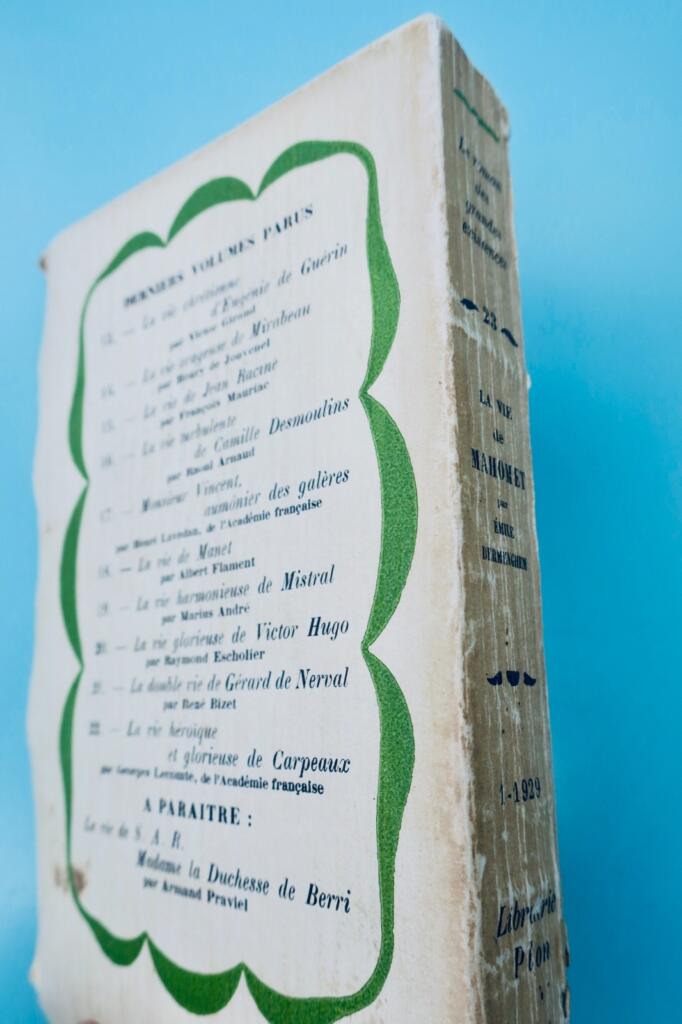 DERNIERS VOLUMES PARUS
13. — La vie chrétienne
d'Eugénie de Guérin
par Victor Giraud
14. — La vie orageuse de Mirabeau
par Henry de Jouvenel
15. — La vie de Jean Racine
par François Mauriac
16. — La vie turbulente
de Camille Desmoulins
par Raoul Arnaud
17. — Monsieur Vincent,
aumônier des galères
par Henri Lavedan, de l'Académie française
18. — La vie de Manet
par Albert Flament
19. — La vie harmonieuse de Mistral
par Marius André
20. — La vie glorieuse de Victor Hugo
par Raymond Escholier
21. — La double vie de Gérard de Nerval
par René Bizet
22. — La vie héroïque
et glorieuse de Carpeaux
par Georges Lecomte, de l'Académie française
A PARAITRE :
La vie de S. A. R.
Madame la Duchesse de Berri
par Armand Praviel
Le roman
des
grandes
existences
23
LA VIE
de
MAHOMET
par
ÉMILE
DERMENGHEM
1-1929
Librairie
Plon